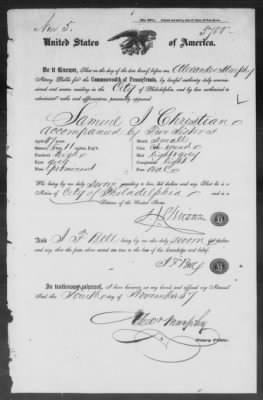 Nov 5.
United States of America.
Be it Known, That on the day of the date hereof before me Alexander Murphy
Notary Public for the Commonwealth of Pennsylvania, by lawful authority duly commissioned
and sworn, residing in the City of Philadelphia, and by law authorized to
administer oaths and affirmations, personally appeared
Samuel J Christian
accompanied by Two Sisters
Age 47 years
Mouth Small
Stature 5 feet 11 inches Eng's
Chin round
Forehead high
Hair light & grey
Eyes grey
Complexion light
Nose prominent
Face oval
Who being by me duly sworn according to law, did declare and say, That he is a
Native of City of Philadelphia and a
Citizen of the United States.
And J F Bell being by me also duly sworn did declare
and say, that the facts above stated are true to the best of his knowledge and belief.
J F Bell
In testimony whereof, I have hereunto set my hand and affixed my Notarial
Seal, this Fourth day of November 57
Alexr Murphy
Notary Public.